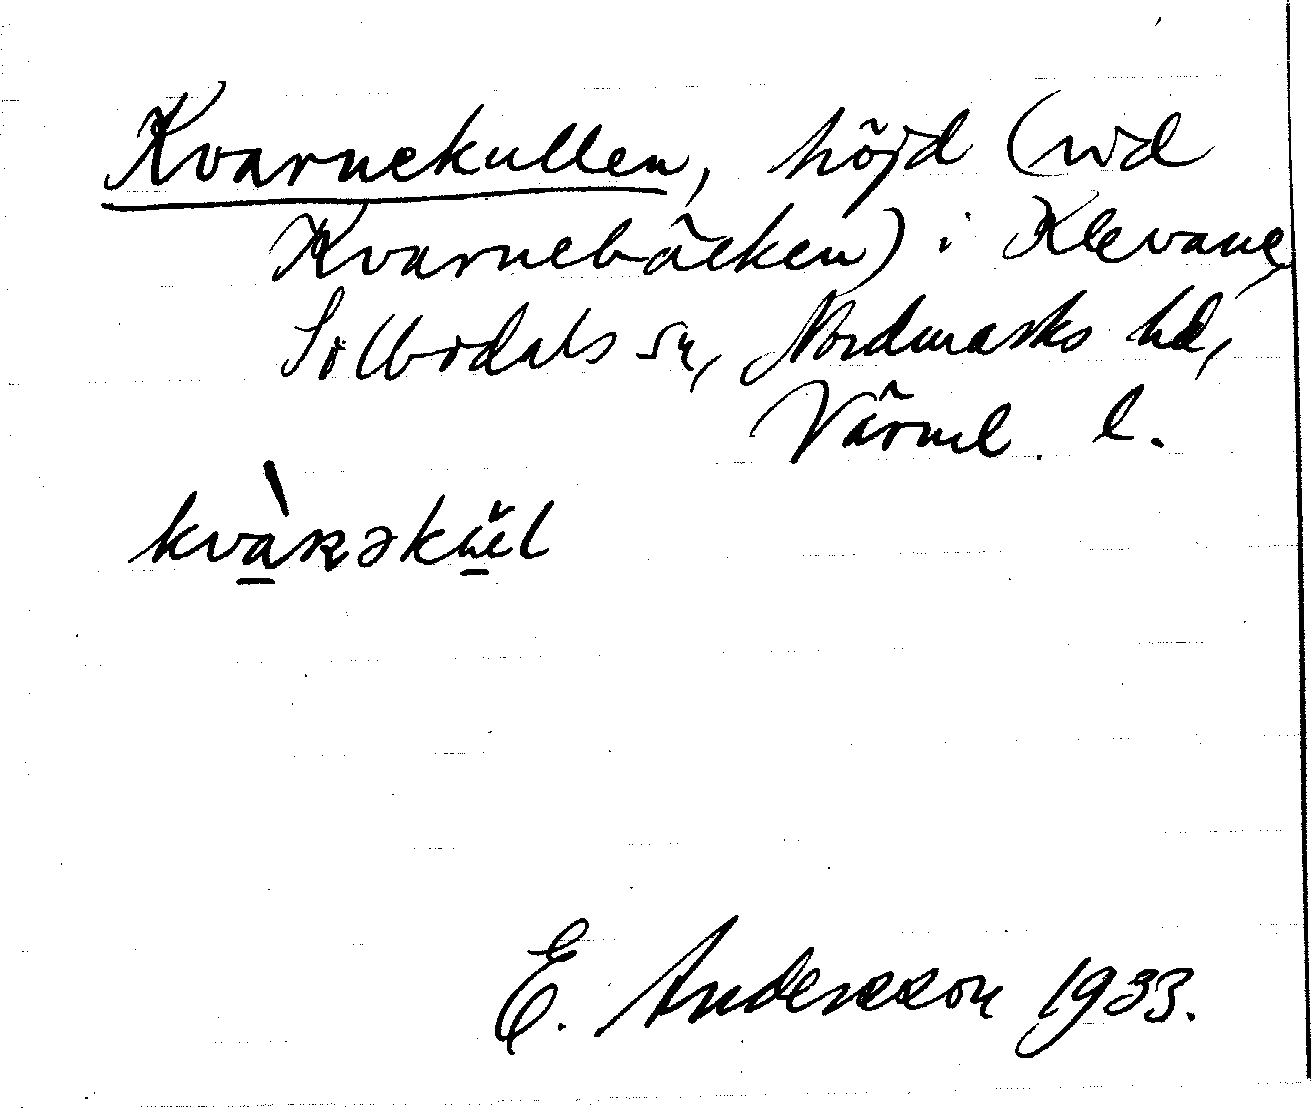 Kvarnekullen, höjd (vid
Kvarnebäcken) i Klevane,
Sillbodals sn, Nordmarks hd,
Värml. l.
E. Andersson 1933.